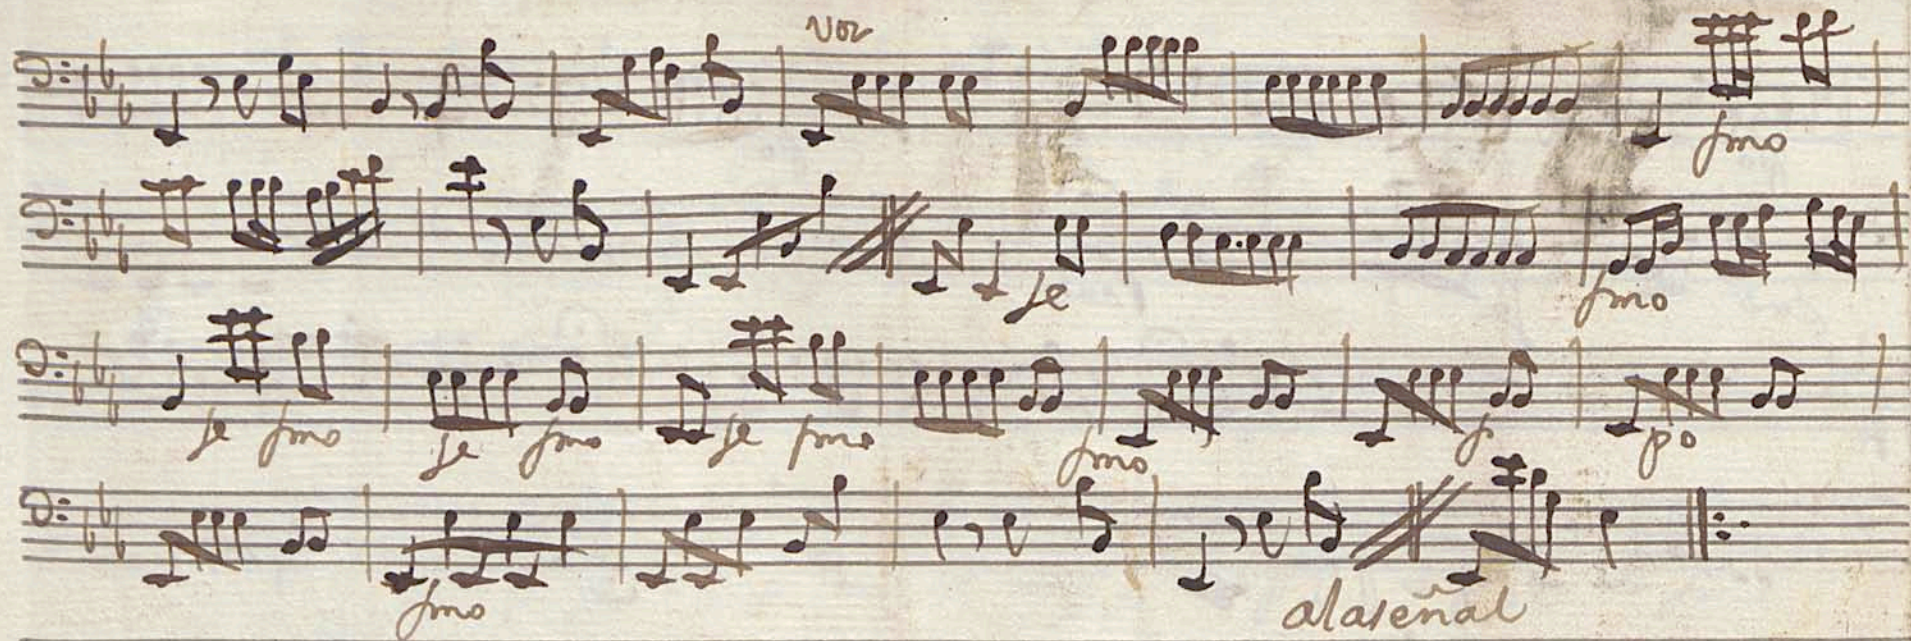 Voz
fmo
fe fmo
fe fmo fe fmo fe fmo fmo f po
fmo alaseñal